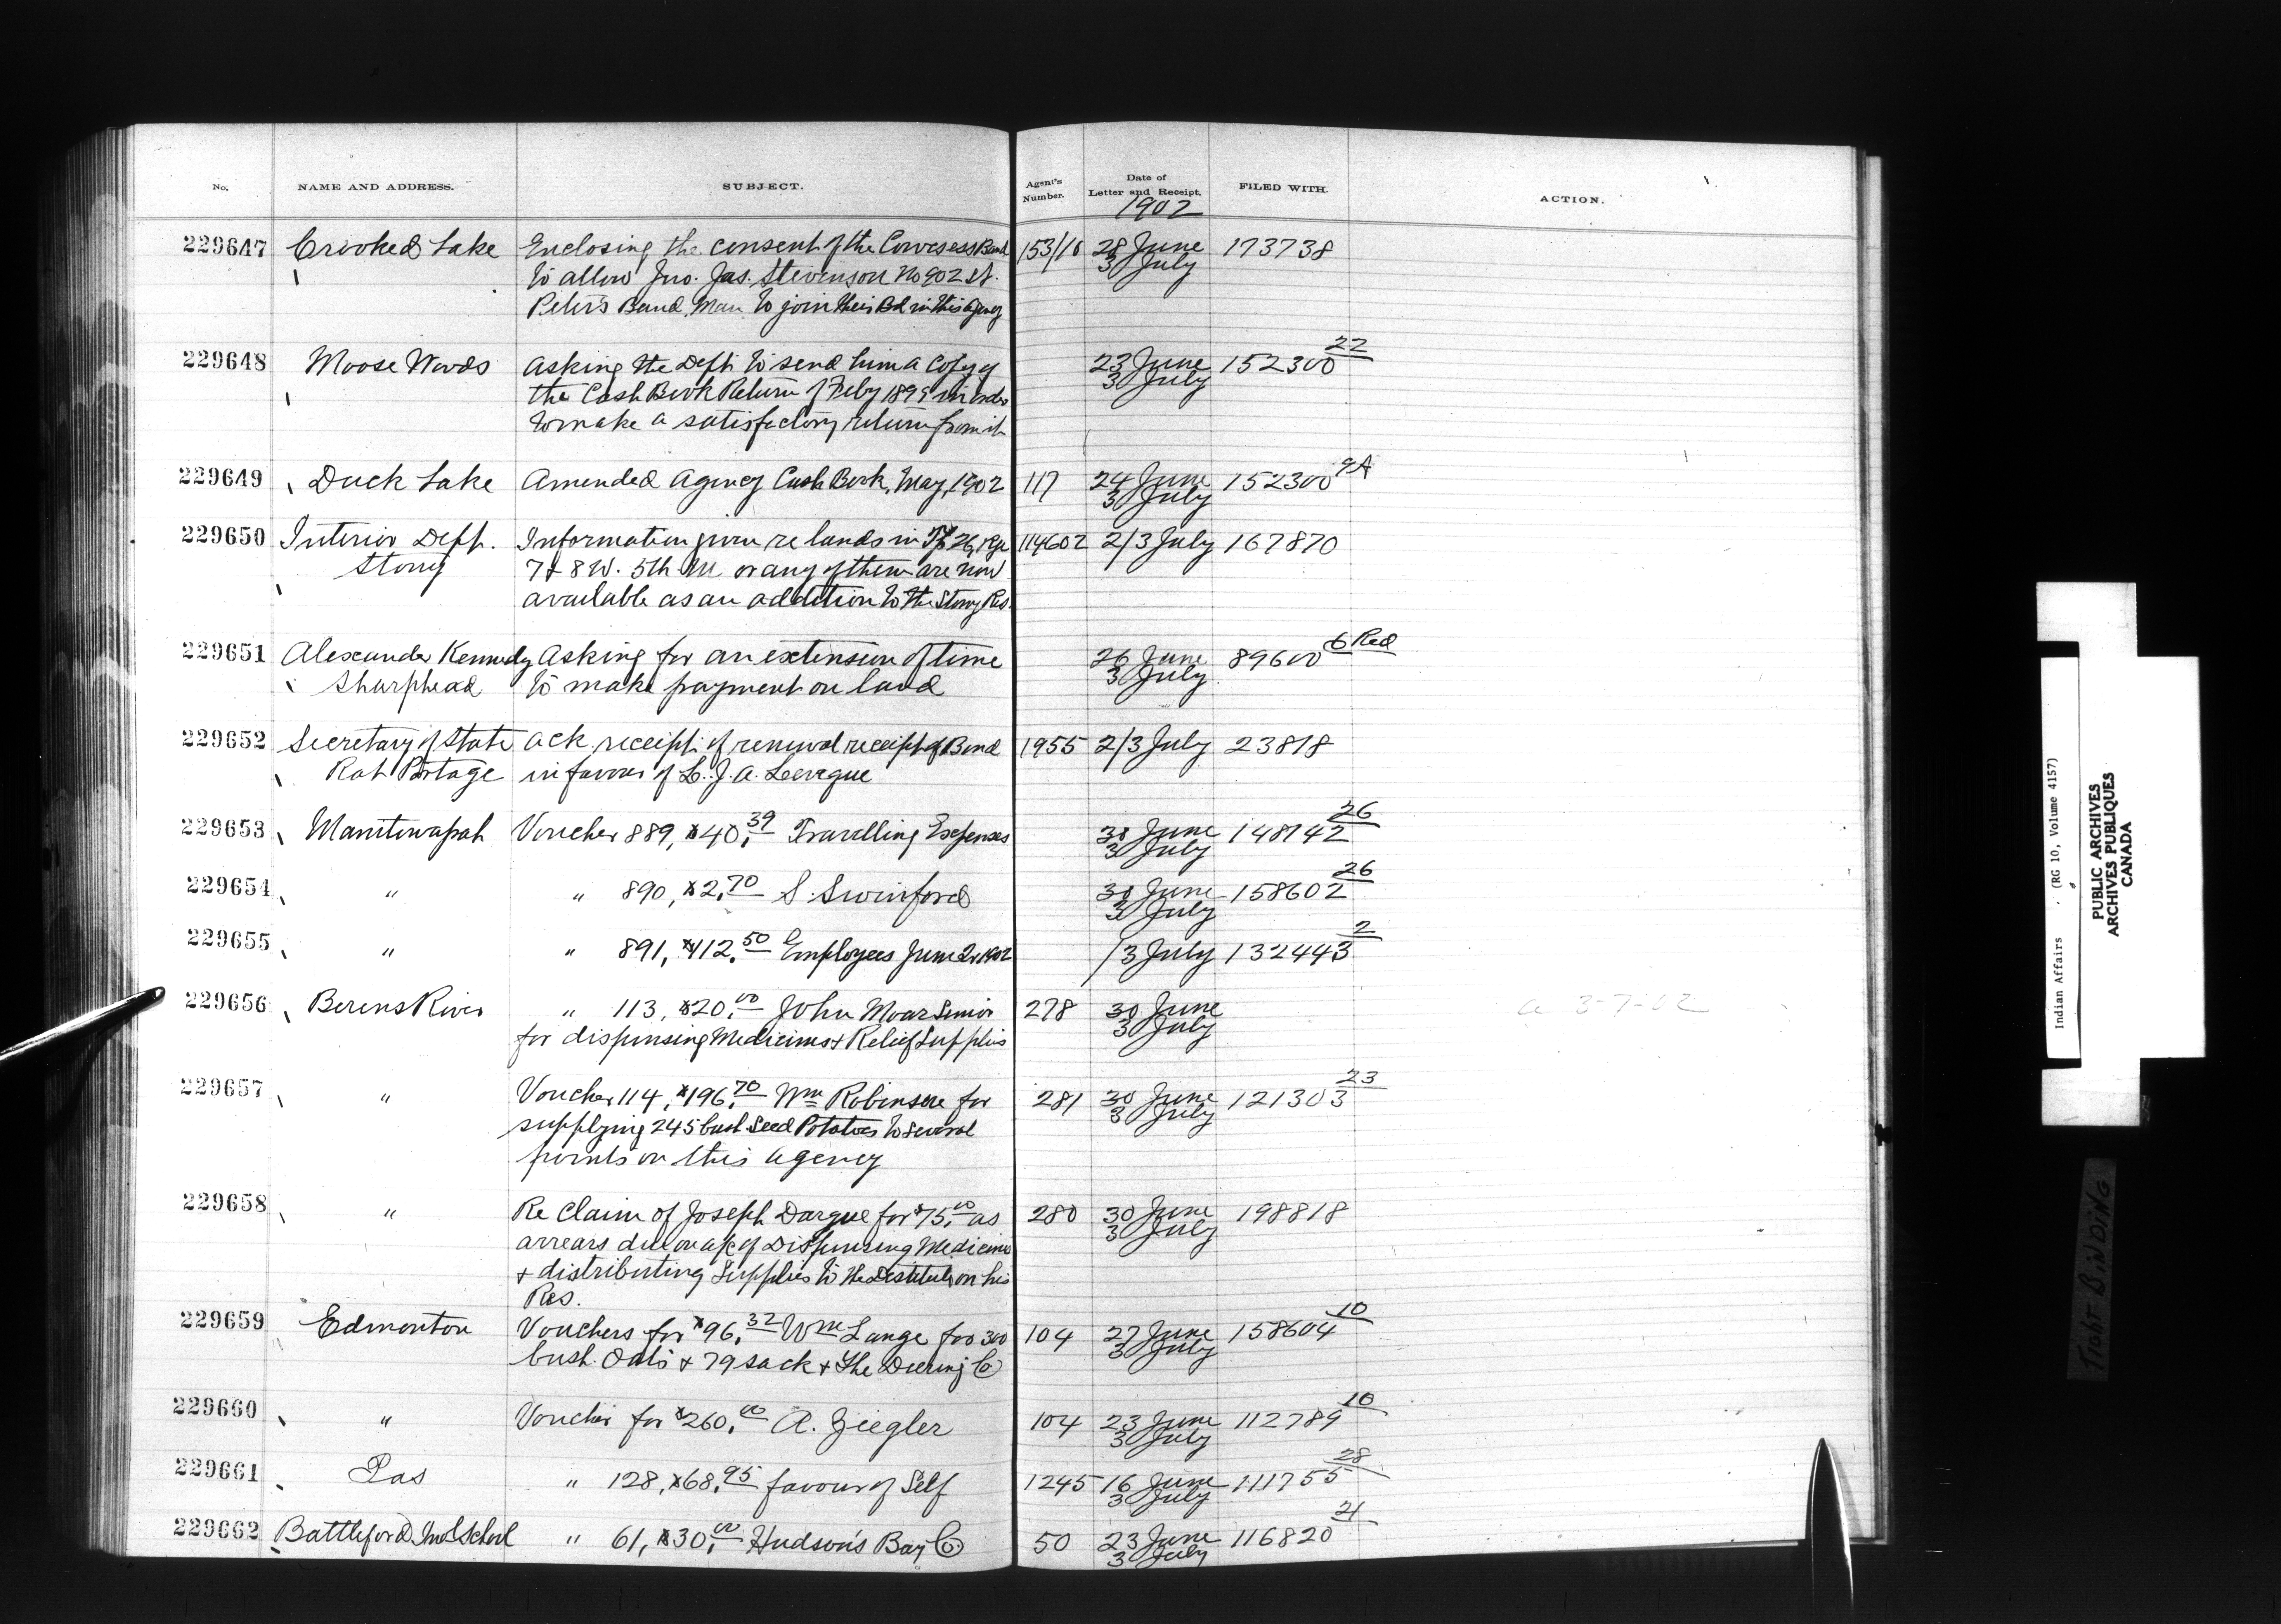 No. NAME AND ADDRESS. SUBJECT. Agent's Number. Date of Letter and Receipt. FILED WITH. ACTION.
1902
229647 Crooked Lake Enclosing the consent of the Cowesess Band 153/10 28 June 173738
to allow Jno. Jas. Stevenson No 902 St. 3 July
Peter's Band, Man to join their Bd in this agency
229648 Moose Woods Asking the Dept. to send him a copy of 23 June 152300 22
the Cash Book Return of Feby 1899 in order 3 July
to make a satisfactory return from it
229649 Duck Lake Amended Agency Cash Book, May, 1902 117 24 June 152300 9A
3 July
229650 Interior Dept. Information given re lands in Tp 26, Rge 114602 2/3 July 167870
Stony 7 & 8 W. 5th M. or any of them are now
available as an addition to the Stony Res.
229651 Alexander Kennedy Asking for an extension of time 26 June 89600 6 Red
Sharphead to make payment on land 3 July
229652 Secretary of State Ack. receipt of renewal receipt of Bond 1955 2/3 July 23818
Rat Portage in favour of L. J. A. Leveque
229653 Manitowapah Voucher 889, $40.39 Travelling Expenses 30 June 148142 26
3 July
229654 " " 890, $2.70 S. Swinford 30 June 158602 26
3 July
229655 " " 891, $412.50 Employees June Qr 1902 /3 July 132443 2
229656 Berens River " 113, $20.00 John Moar Senior 278 30 June a 3-7-02
for dispensing Medicines & Relief Supplies 3 July
229657 " Voucher 114, $196.70 Wm Robinson for 281 30 June 121303 23
supplying 245 bush Seed Potatoes to several 3 July
points on this agency
229658 " Re Claim of Joseph Dargue for $75.00 as 280 30 June 198818
arrears due on a/c of Dispensing Medicine 3 July
& distributing Supplies to the Destitute on his
Res.
229659 Edmonton Vouchers for $96.32 Wm Lange for 300 104 27 June 158604 10
bush. Oats & 79 sack & The Deering Co 3 July
229660 " Voucher for $260.00 A. Ziegler 104 23 June 112789 10
3 July
229661 Pas " 128, $68.95 favour of Self 1245 16 June 111755 28
3 July
229662 Battleford Ind School " 61, $30.00 Hudson's Bay Co 50 23 June 116820 21
3 July
Indian Affairs (RG 10, Volume 4157)
PUBLIC ARCHIVES
ARCHIVES PUBLIQUES
CANADA
TIGHT BINDING